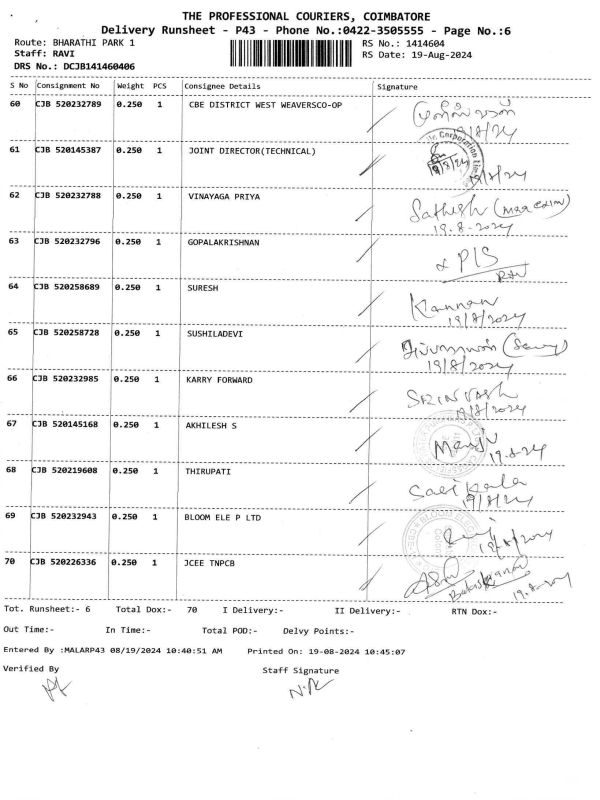 THE PROFESSIONAL COURIERS, COIMBATORE
Delivery Runsheet - P43 - Phone No.:0422-3505555 - Page No.:6
Route: BHARATHI PARK 1 RS No.: 1414604
Staff: RAVI RS Date: 19-Aug-2024
DRS No.: DCJB141460406
S No Consignment No Weight PCS Consignee Details Signature
60 CJB 520232789 0.250 1 CBE DISTRICT WEST WEAVERSCO-OP
19/8/24
61 CJB 520145387 0.250 1 JOINT DIRECTOR(TECHNICAL)
19/8/24
62 CJB 520232788 0.250 1 VINAYAGA PRIYA Sathish
19.8.2024
63 CJB 520232796 0.250 1 GOPALAKRISHNAN
64 CJB 520258689 0.250 1 SURESH Kannan
19/8/2024
65 CJB 520258728 0.250 1 SUSHILADEVI
19/8/2024
66 CJB 520232985 0.250 1 KARRY FORWARD
19/8/2024
67 CJB 520145168 0.250 1 AKHILESH S Manju
19.8.24
68 CJB 520219608 0.250 1 THIRUPATI
19/8/24
69 CJB 520232943 0.250 1 BLOOM ELE P LTD
19/8/2024
70 CJB 520226336 0.250 1 JCEE TNPCB
19.8.2024
Tot. Runsheet:- 6 Total Dox:- 70 I Delivery:- II Delivery:- RTN Dox:-
Out Time:- In Time:- Total POD:- Delvy Points:-
Entered By :MALARP43 08/19/2024 10:40:51 AM Printed On: 19-08-2024 10:45:07
Verified By Staff Signature